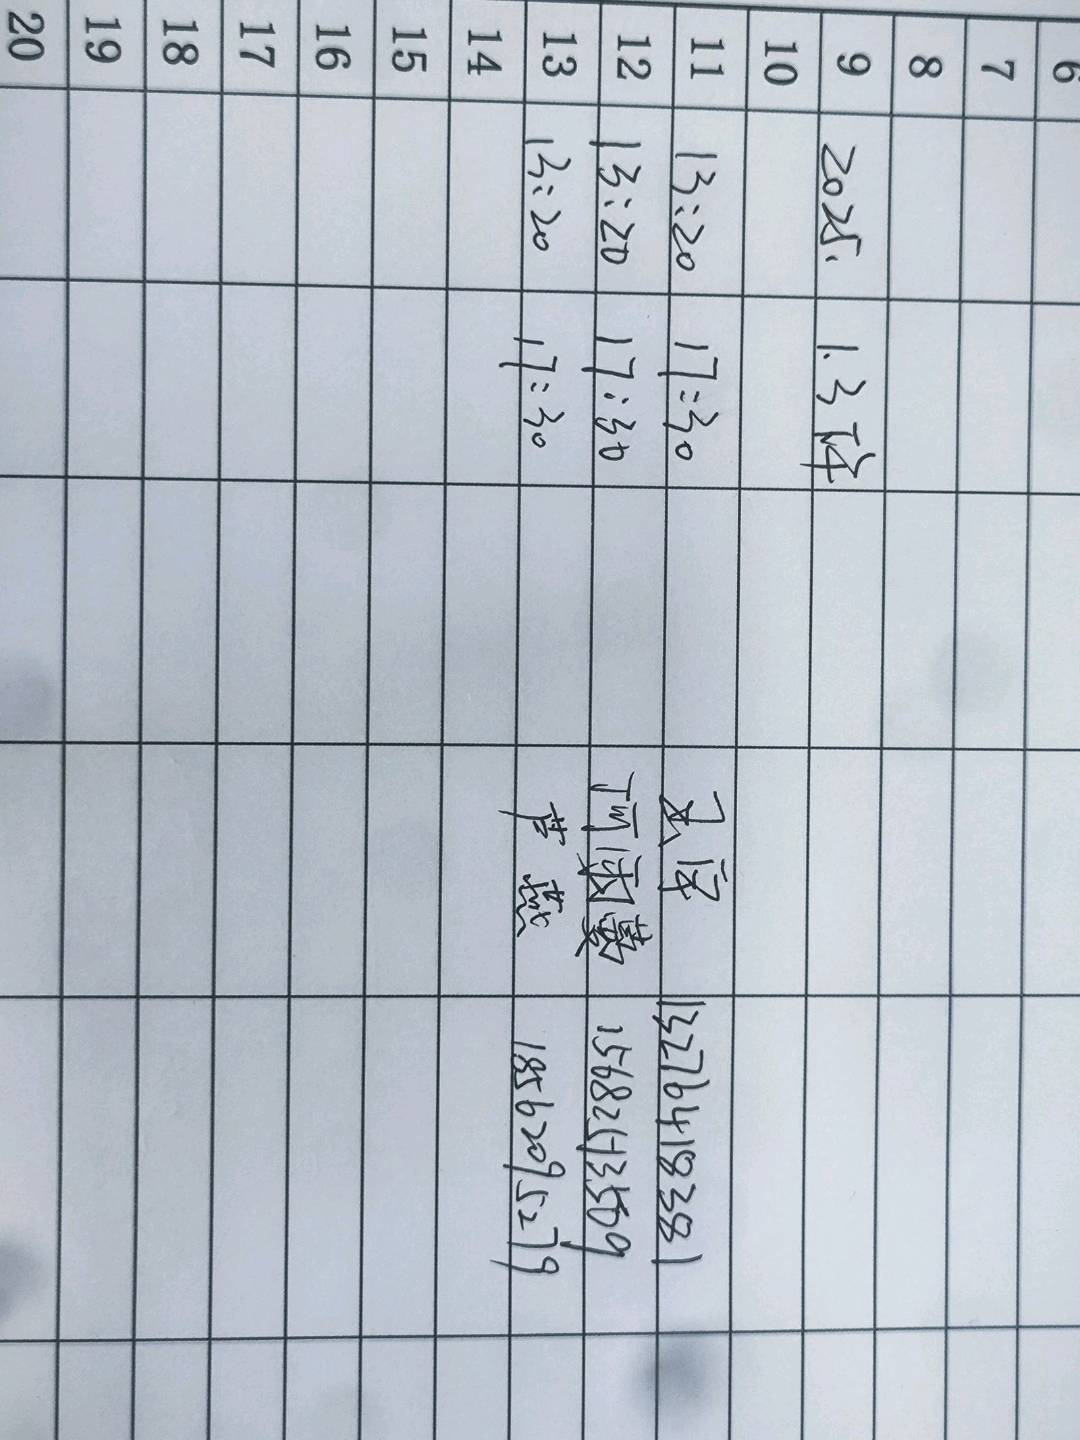 6
7
8
9 2025. 1.3 下午
10
11 13:20 17:30 13276418381
12 13:20 17:30 15682413509
13 13:20 17:30 18562095279
14
15
16
17
18
19
20